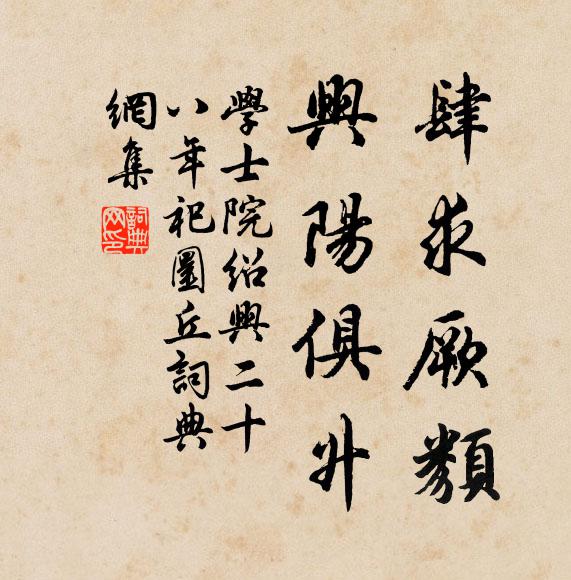 肆求厥類
興陽俱升
學士院紹興二十
八年祀圜丘詞典
網集
詞典網印